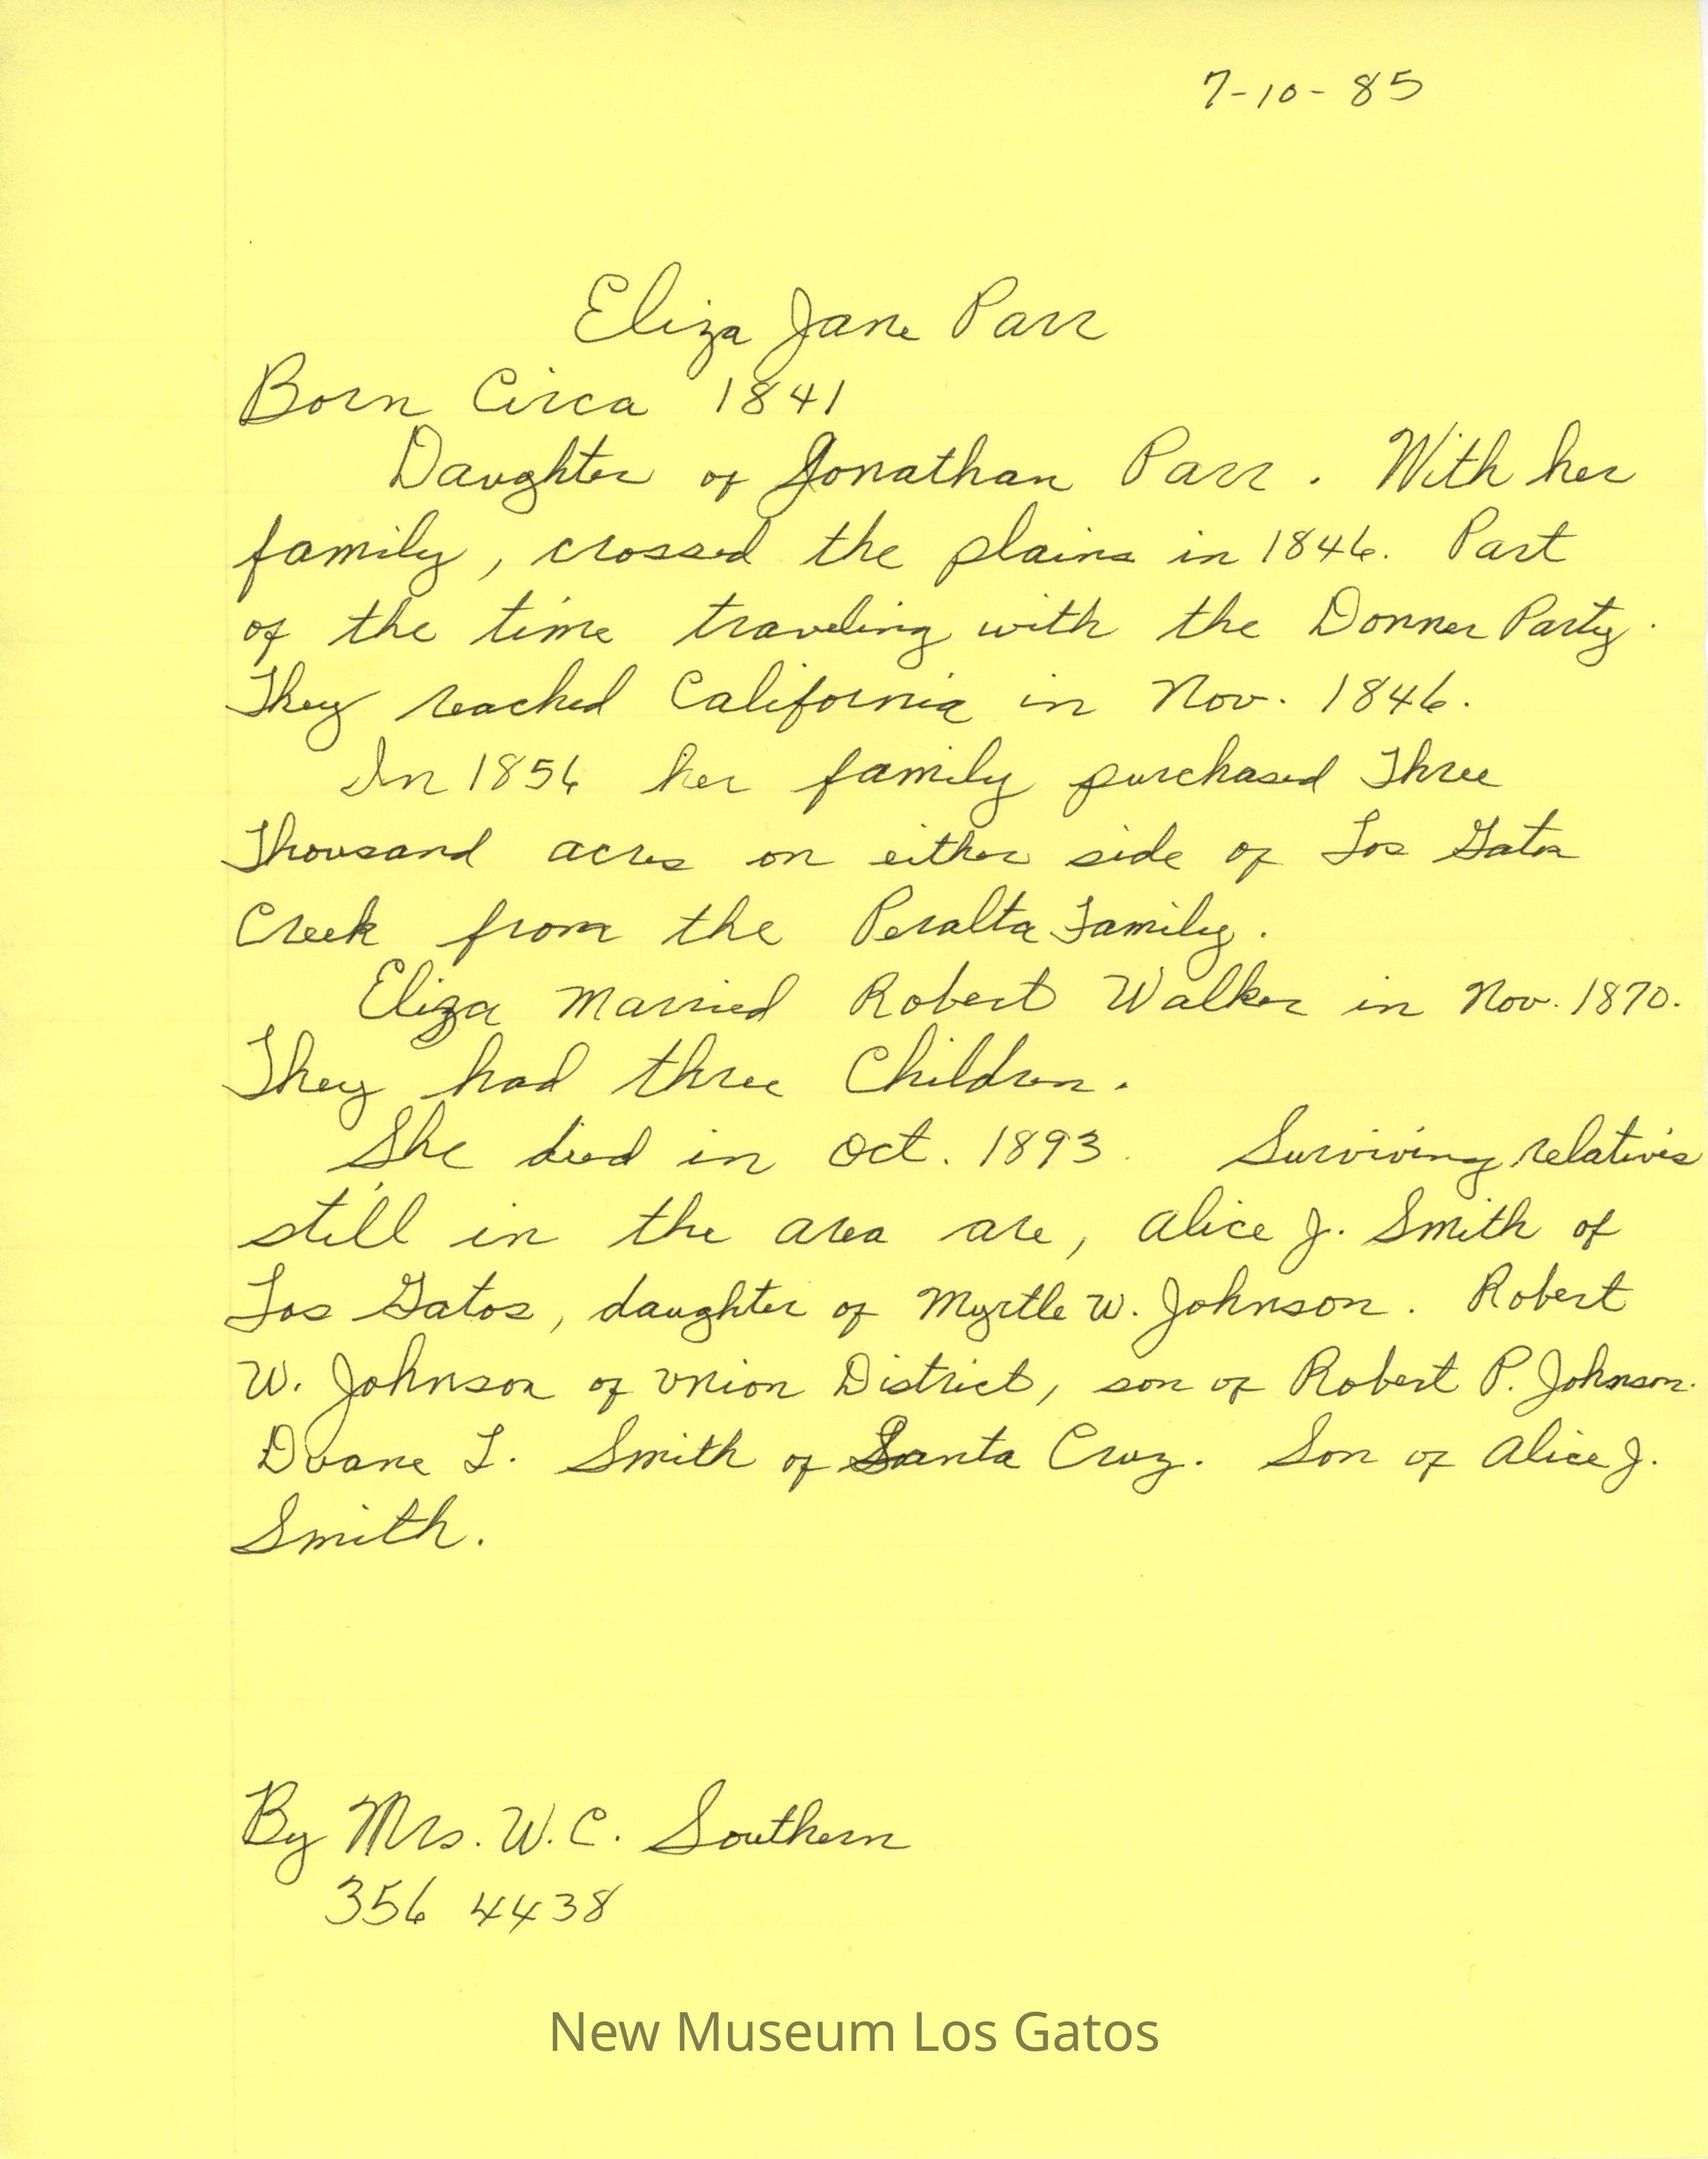 7-10-85
Eliza Jane Parr
Born Circa 1841
Daughter of Jonathan Parr. With her
family, crossed the plains in 1846. Part
of the time traveling with the Donner Party.
They reached California in Nov. 1846.
In 1856 her family purchased Three
Thousand acres on either side of Los Gatos
Creek from the Peralta Family.
Eliza Married Robert Walker in Nov. 1870.
They had three Children.
She died in Oct. 1893. Surviving relatives
still in the area are, Alice J. Smith of
Los Gatos, daughter of Myrtle W. Johnson. Robert
W. Johnson of Union District, son of Robert P. Johnson.
Duane L. Smith of Santa Cruz. Son of Alice J.
Smith.
By Mrs. W.C. Southern
356 4438
New Museum Los Gatos